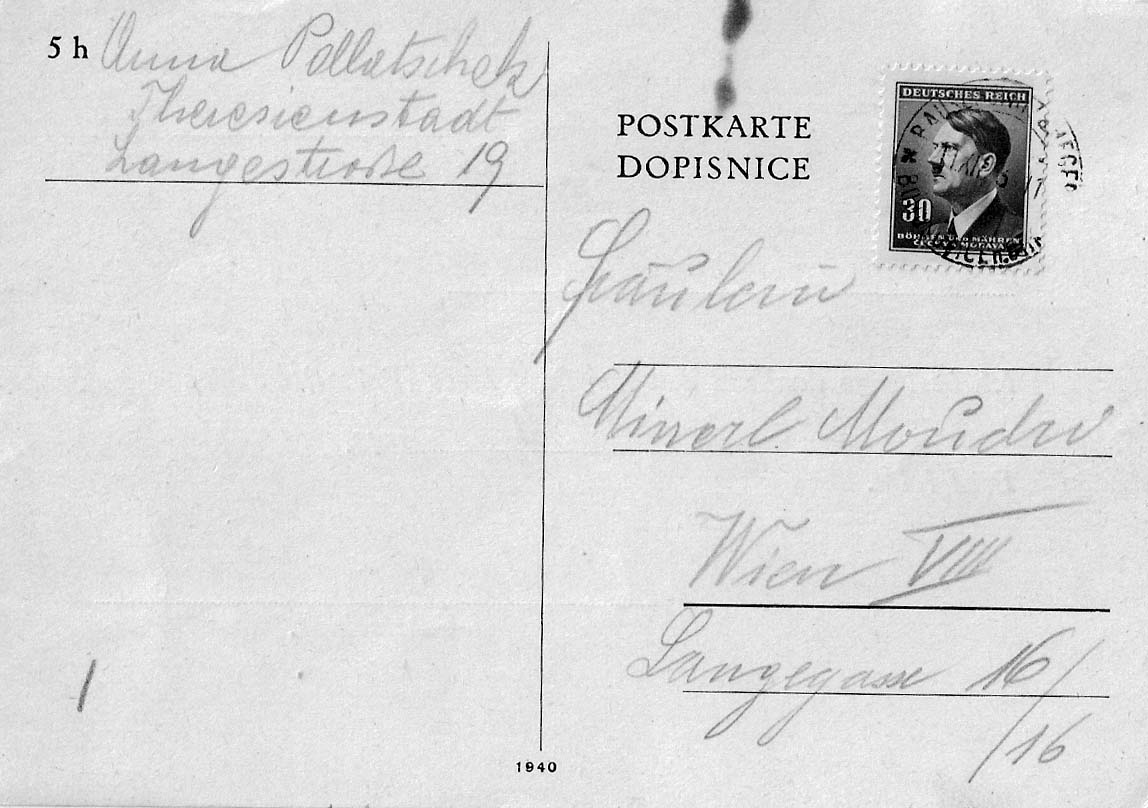 5 h Anna Pollatschek
Theresienstadt
Langestraße 19
POSTKARTE
DOPISNICE
DEUTSCHES REICH
30
BÖHMEN UND MÄHREN
ČECHY A MORAVA
Fräulein
Minerl Moudri
Wien VIII
Langegasse 16/
/16
1940